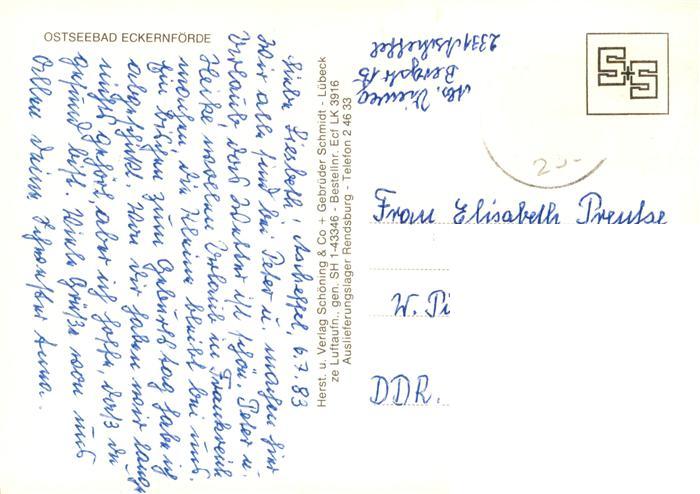 OSTSEEBAD ECKERNFÖRDE
Liebe Liesbeth! Ascheffel, 6.7.83
Wir alle sind bei Peter u. machen hier
Urlaub, das Wetter ist schön. Peter u.
Heike wollen Urlaub in Frankreich
machen, die Kleine bleibt bei uns.
Ein bißchen zum Geburtstag habe ich
abgeschickt. Von Dir haben wir lange
nichts gehört, aber ich hoffe, daß Du
gesund bist. Viele Grüße von uns
allen Deine Schwester Anna.
Herst. u. Verlag Schöning & Co + Gebrüder Schmidt - Lübeck
ze Luftaufn., gen. SH 1-43346 - Bestellnr. Ecf LK 3916
Auslieferungslager Rendsburg - Telefon 2 46 33
Abs. Vieweg
Bergstr. 15
2331 Ascheffel
S+S
Frau Elisabeth Preuße
W. Pi
DDR.